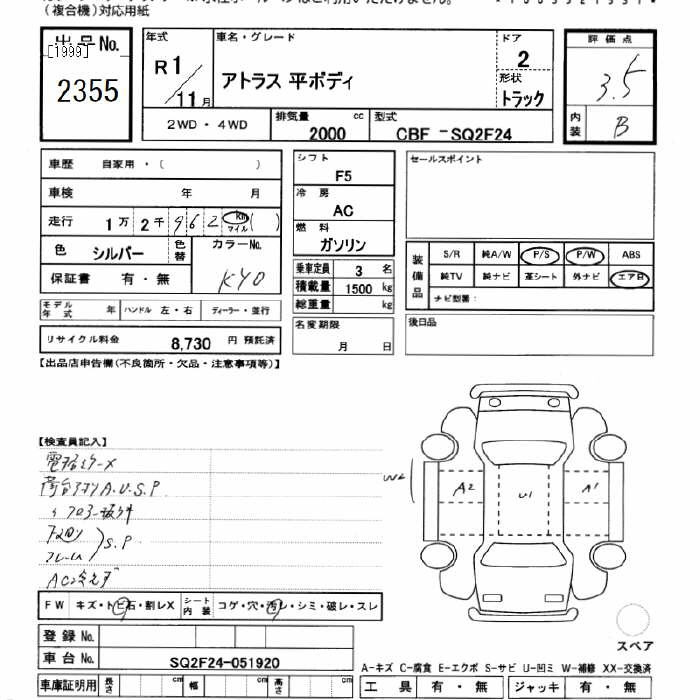 (複合機)対応用紙
出品No.
[1999]
2355
年式
R1
11月
車名・グレード
アトラス 平ボディ
ドア
2
形状
トラック
評価点
3.5
内装
B
2WD・4WD
排気量
2000 cc
型式
CBF-SQ2F24
車歴 自家用・( )
車検 年 月
走行 1万2千962 km マイル ( )
色 シルバー 色替
カラーNo.
KY0
保証書 有・無
シフト
F5
冷房
AC
燃料
ガソリン
乗車定員 3 名
積載量 1500 kg
総重量 kg
セールスポイント
装備品
S/R 純A/W P/S P/W ABS
純TV 純ナビ 革シート 外ナビ エアB
ナビ型番:
モデル年式 年 ハンドル 左・右 ディーラー・並行
名変期限
月 日
後日品
リサイクル料金 8,730 円 預託済
【出品店申告欄(不良箇所・欠品・注意事項等)】
【検査員記入】
荷台 A.U.S.P
フレーム
S.P
W2
A2
U1
A1
FW キズ・トビ石・割レX
シート内装 コゲ・穴・汚レ・シミ・破レ・スレ
登録No.
車台No. SQ2F24-051920
車庫証明用 長さ cm 幅 cm 高さ cm
スペア
A-キズ C-腐食 E-エクボ S-サビ U-凹ミ W-補修 XX-交換済
工具 有・無 ジャッキ 有・無